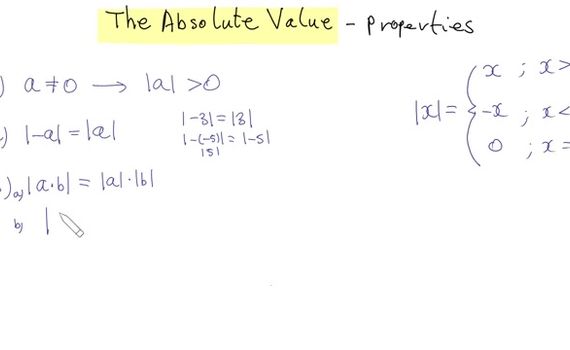 The Absolute Value - Properties
) a ≠ 0 → |a| > 0
) |-a| = |a|
|-3| = |3|
|-(-5)| = |-5|
|5|
) a) |a·b| = |a|·|b|
b) |
|x| = { x ; x >
-x ; x <
0 ; x =